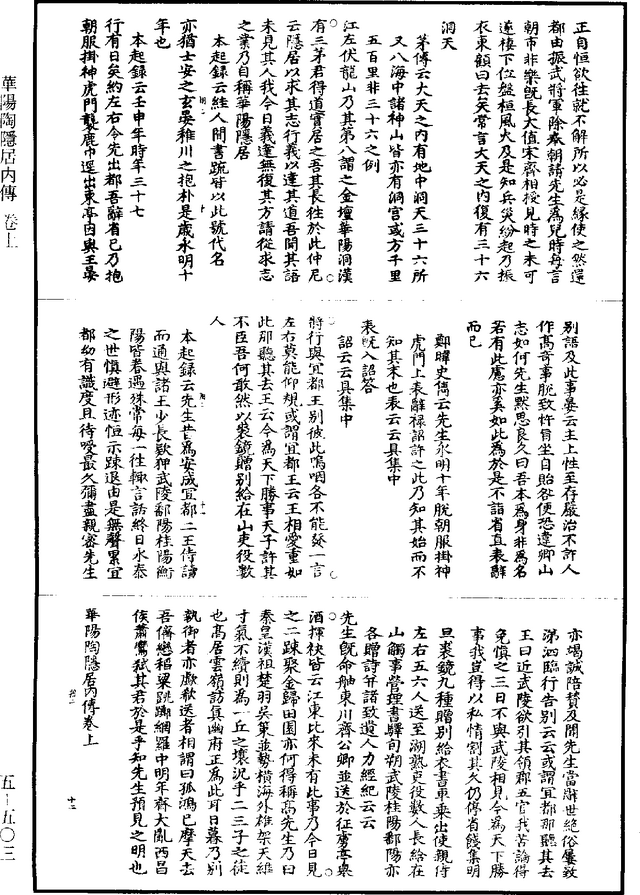 正自恒欲往就不解所以必是緣使之然還
都由振武將軍除奉朝請先生為兒時每言
朝市非樂既長大值宋齊相授見時之未可
遂棲下位盤桓風火及是知兵災紛起乃振
衣東顧曰去矣常言大天之內復有三十六
洞天
茅傳云大天之內有地中洞天三十六所
又八海中諸神山皆亦有洞宮或方千里
五百里非三十六之例
江左伏龍山乃其第八謂之金壇華陽洞漢
有三茅君得道實居之吾其長往於此仲尼
云隱居以求其志行義以達其道吾聞其語
未見其人我今日義達無復其方請從求志
之業乃自稱華陽隱居
本起錄云經人間書疏皆以此號代名
亦猶士安之玄晏稚川之抱朴是歲永明十
年也
本起錄云壬申年時年三十七
行有日矣約左右令先出都吾辭省已乃抱
朝服掛神虎門襲鹿巾逕出東亭因與王晏
別語及此事晏云主上性至存嚴治不許人
作高奇事脫致忤旨坐自貽咎便恐違卿山
志如何先生默思良久曰吾本為身非為名
若有此慮亦奚如此為於是不詣省直表辭
而已
鄭暐史儁云先生永明十年脫朝服掛神
虎門上表辭祿詔許之此乃知其始而不
知其末也表云云具集中
表既入詔答
詔云云具集中
將行與宜都王別彼此嗚咽各不能發一言
左右莫能仰視或謂宜都王云王相愛重如
此那聽其去王云今為天下勝事天子許其
不臣吾何敢然以裘鏡贈別給在山吏役數
人
本起錄云先生昔為安成宜都二王侍讀
而通與諸王少長歡狎武陵鄱陽桂陽衡
陽皆眷遇殊常每一往輒言話終日永泰
之世慎避形迹恒示疎退由是無聲累宜
都幼有識度且待愛最久彌盡親密先生
亦竭誠陪贊及聞先生當辭世絕俗屢致
涕泗臨行告別云云或謂宜都那聽其去
王曰近武陵欲引其領郡五官我苦論得
免慎之三日不與武陵相見今為天下勝
事我豈得以私情割其久仍停省餞集明
旦裘鏡九種贈別給衣書車乘出使親侍
左右五六人送至湖熟吏役數人長給在
山觸事營理書驛旬朔武陵桂陽鄱陽亦
各贈詩并諸致遺人力經紀云云
先生既命舳東川齊公卿並送於征虜亭舉
酒揮袂皆云江東比來未有此事乃今日見
之二疎聚金歸田園亦何得稱高先生乃曰
秦皇漢祖楚羽吳策並勢橫海外雄架天維
寸氣不續則為一丘之壤況乎二三子之徒
也高居雲嶺訪真幽府正為此耳日暮乃別
執御者亦歔欷送者相謂曰孤鴻已摩天去
吾儕戀稻粱跳躑網羅中明年齊大亂西昌
侯蕭鸞弒其君於是乎知先生預見之明也
華陽陶隱居內傳卷上
華陽陶隱居內傳 卷上
五－五〇三